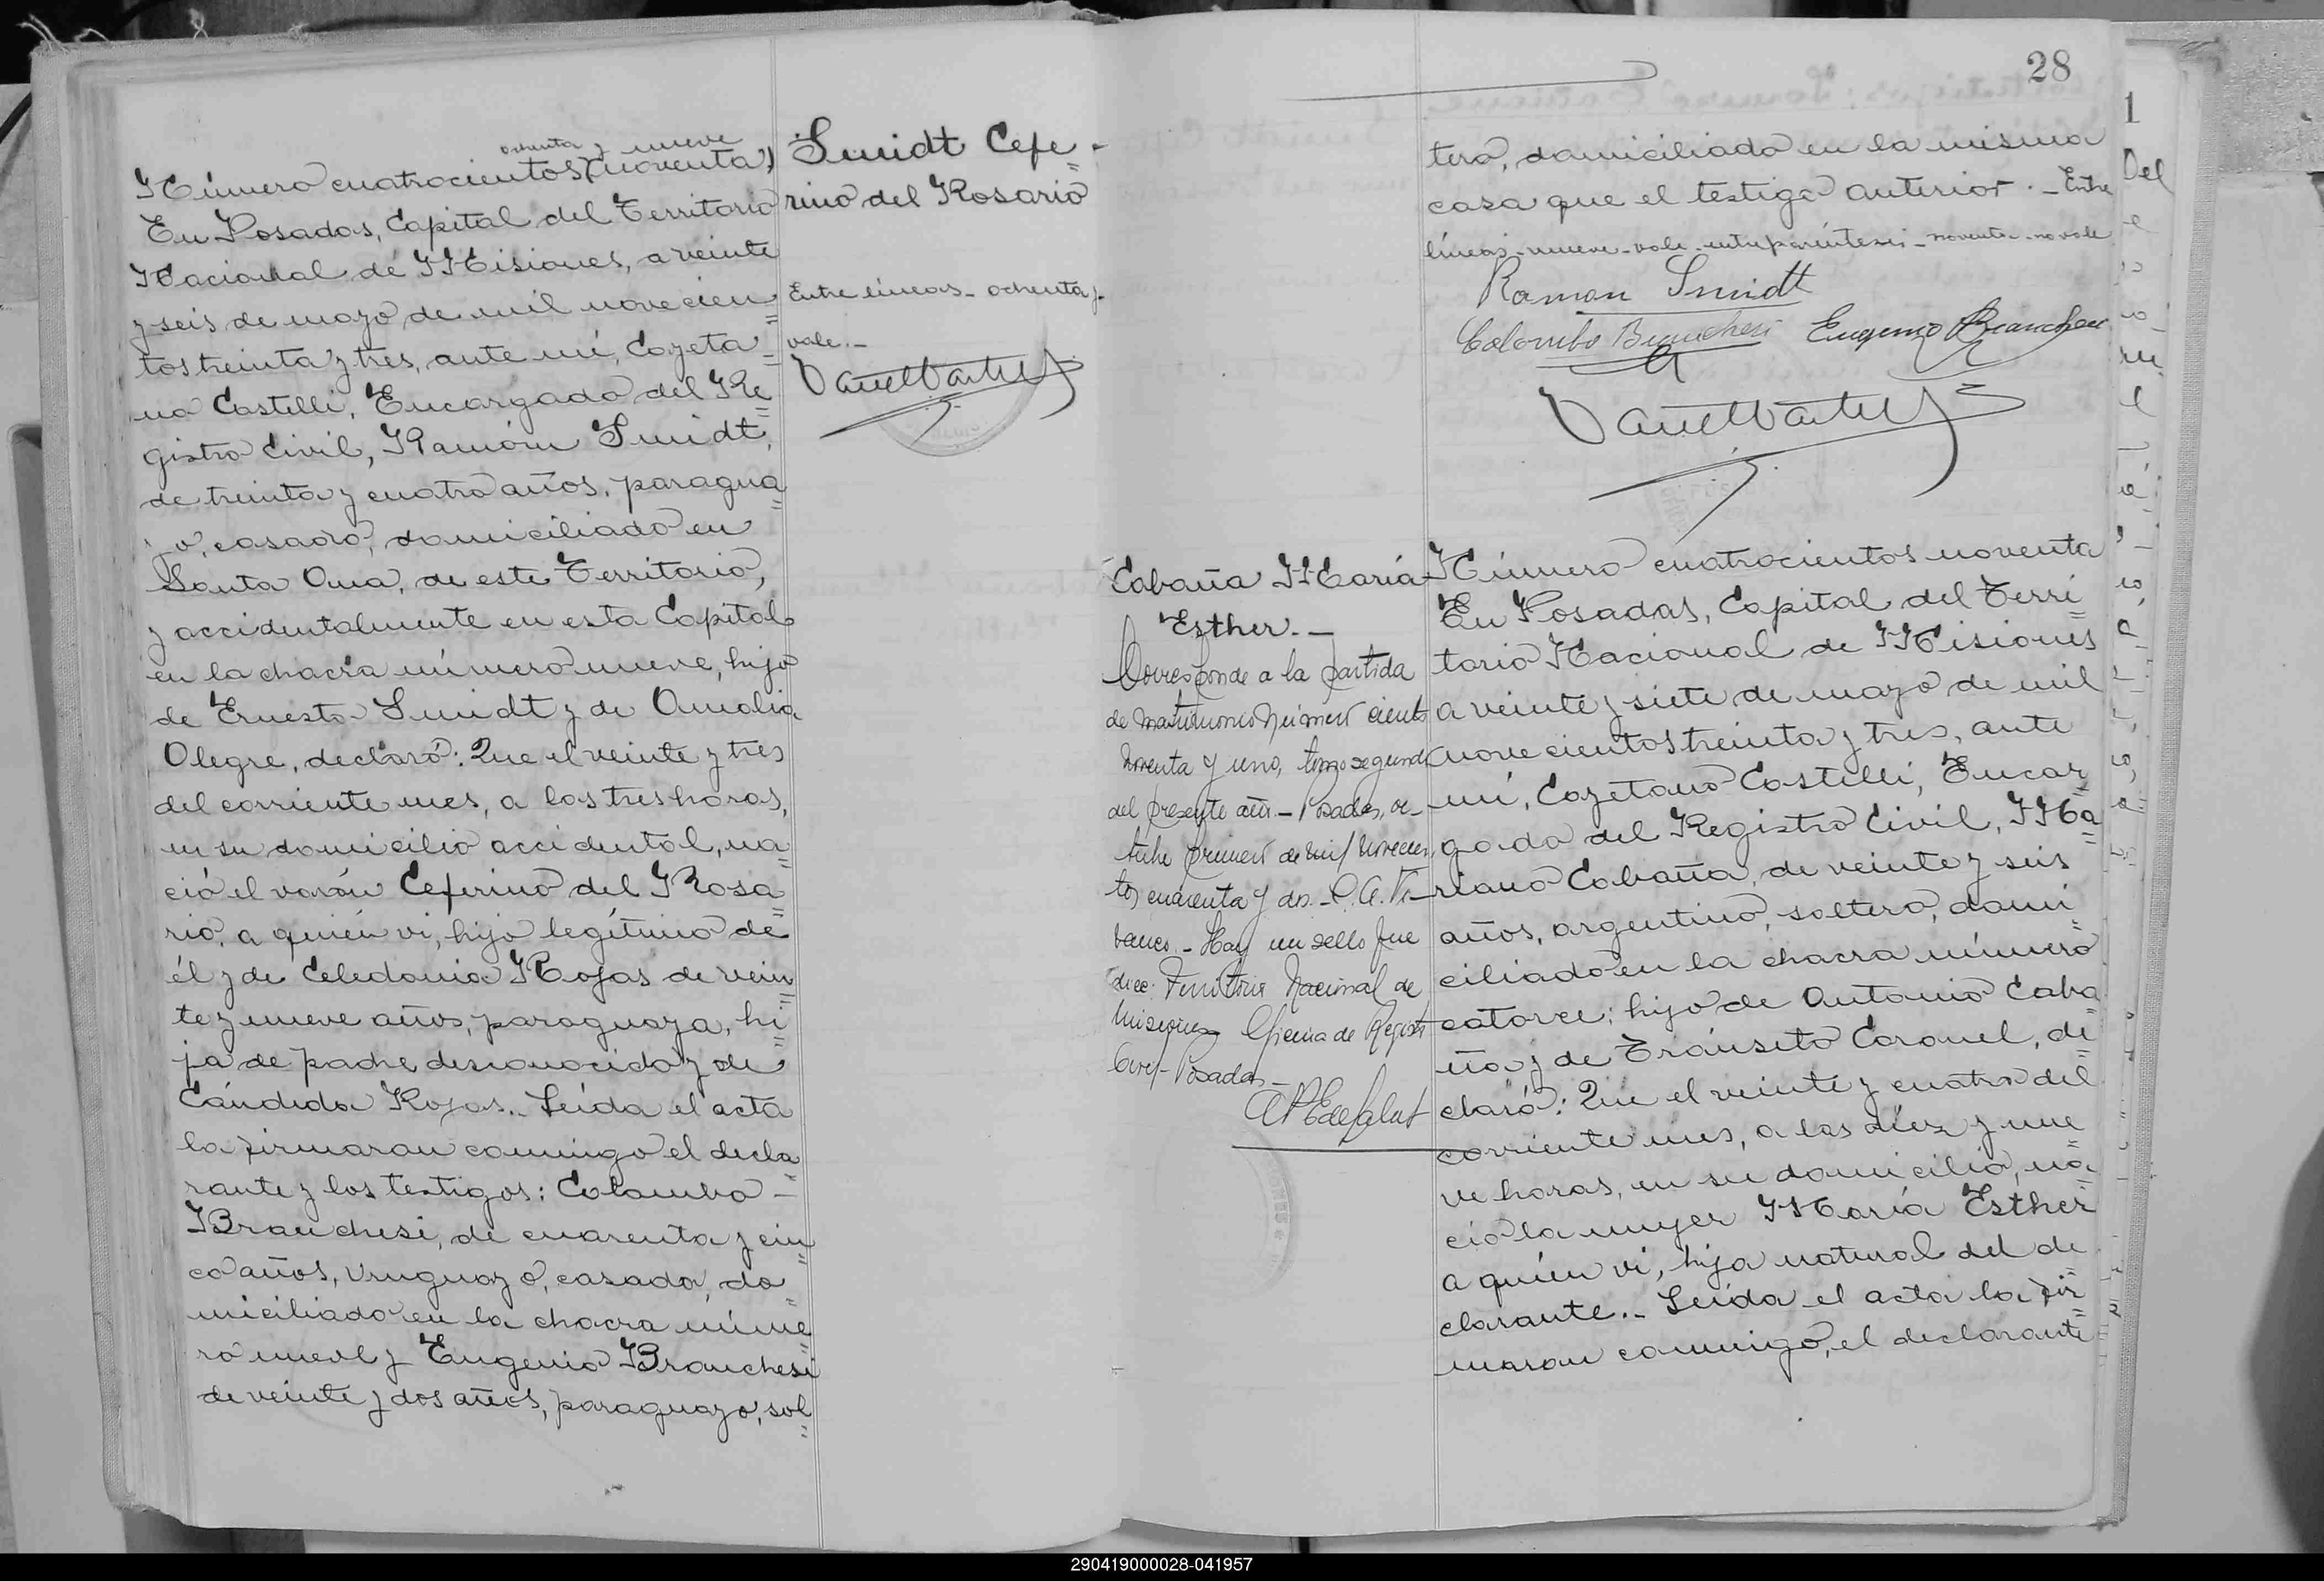 ochenta y nueve
Número cuatrocientos (noventa)
En Posadas, Capital del Territorio
Nacional de Misiones, a veinte
y seis de mayo de mil novecien=
tos treinta y tres, ante mí, Cayeta=
no Castelli, Encargado del Re=
gistro Civil, Ramón Smidt,
de treinta y cuatro años, paragua=
yo, casado, domiciliado en
Santa Ana, de este Territorio,
y accidentalmente en esta Capital
en la chacra número nueve, hijo
de Ernesto Smidt y de Amalia
Alegre, declaró: Que el veinte y tres
del corriente mes, a las tres horas,
en su domicilio accidental, na=
ció el varón Ceferino del Rosa=
rio, a quién vi, hijo legítimo de
él y de Celedonia Rojas de vein=
te y nueve años, paraguaya, hi=
ja de padre desconocido y de
Cándida Rojas.. Leída el acta
la firmaron conmigo el decla=
rante y los testigos: Colombo -
Branchesi, de cuarenta y cin=
co años, Uruguayo, casado, do=
miciliado en la chacra núme=
ro nueve y Eugenio Branchesi
de veinte y dos años, paraguayo, sol=
Smidt Cefe=
rino del Rosario
Entre líneas - ochenta y
vale.-
28
tero, domiciliado en la misma
casa que el testigo anterior. - Entre
líneas - nueve - vale - entre paréntesis - noventa - no vale
Ramon Smidt
Colombo Branchesi Eugenio Branchesi
Cabaña María
Esther. -
Corresponde a la partida
de matrimonio número ciento
noventa y uno, tomo segundo
del presente año. - Posadas, oc-
tubre primero de mil novecien
tos cuarenta y dos. - C. A.
Hay un sello que
dice: Territorio Nacional de
Misiones Oficina de Registro
Civil - Posadas -
Número cuatrocientos noventa
En Posadas, Capital del Terri=
torio Nacional de Misiones
a veinte y siete de mayo de mil
novecientos treinta y tres, ante
mí, Cayetano Castelli, Encar=
gado del Registro Civil, Ma=
riano Cabaña, de veinte y seis
años, argentino, soltero, domi=
ciliado en la chacra número
catorce; hijo de Antonio Caba
ña y de Tránsito Coronel, de=
claró: Que el veinte y cuatro del
corriente mes, a las diez y nue=
ve horas, en su domicilio, na=
ció la mujer María Esther
a quién vi, hija natural del de=
clarante.. Leída el acta la fir=
maron conmigo, el declarante
290419000028-041957